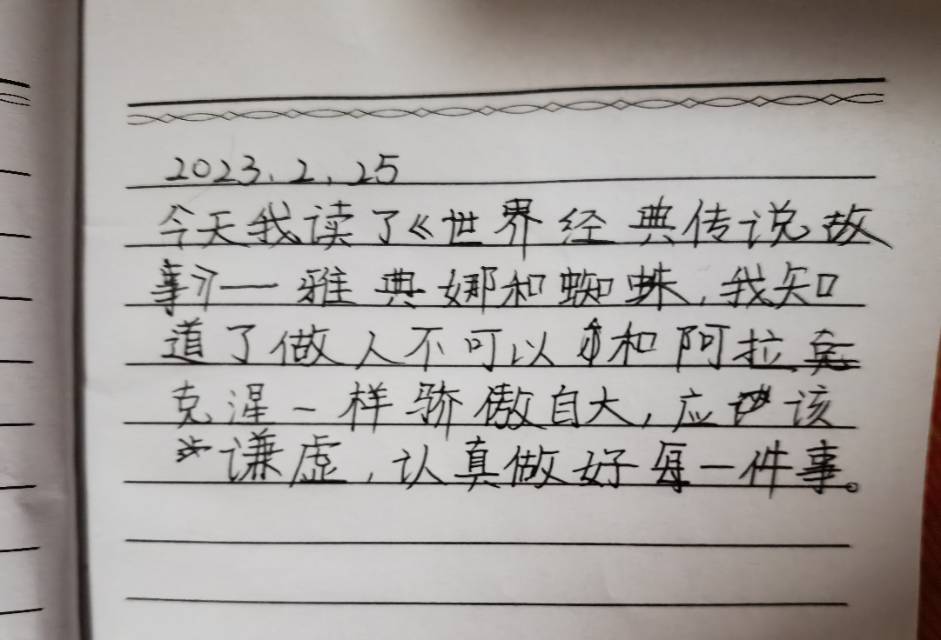 2023.2.25
今天我读了《世界经典传说故
事》一雅典娜和蜘蛛，我知
道了做人不可以和阿拉
克涅一样骄傲自大，应该
谦虚，认真做好每一件事。